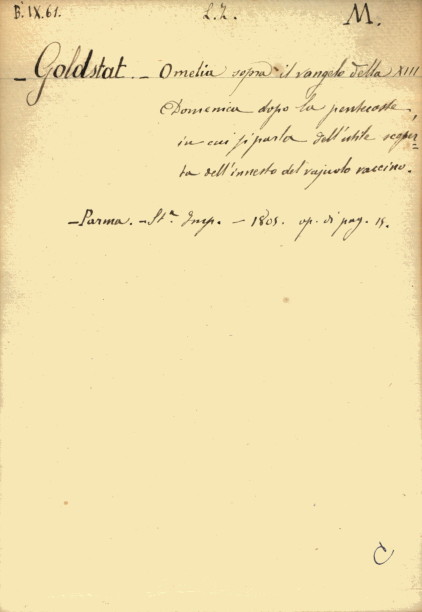 B. IX. 61. L. I. M.
- Goldstat. - Omelia sopra il vangelo della XIII
Domenica dopo la pentecoste,
in cui si parla dell'utile scoper=
ta dell'innesto del vajuolo vaccino.
- Parma. - St.ª Imp. - 1805. op. di pag. 15.
C